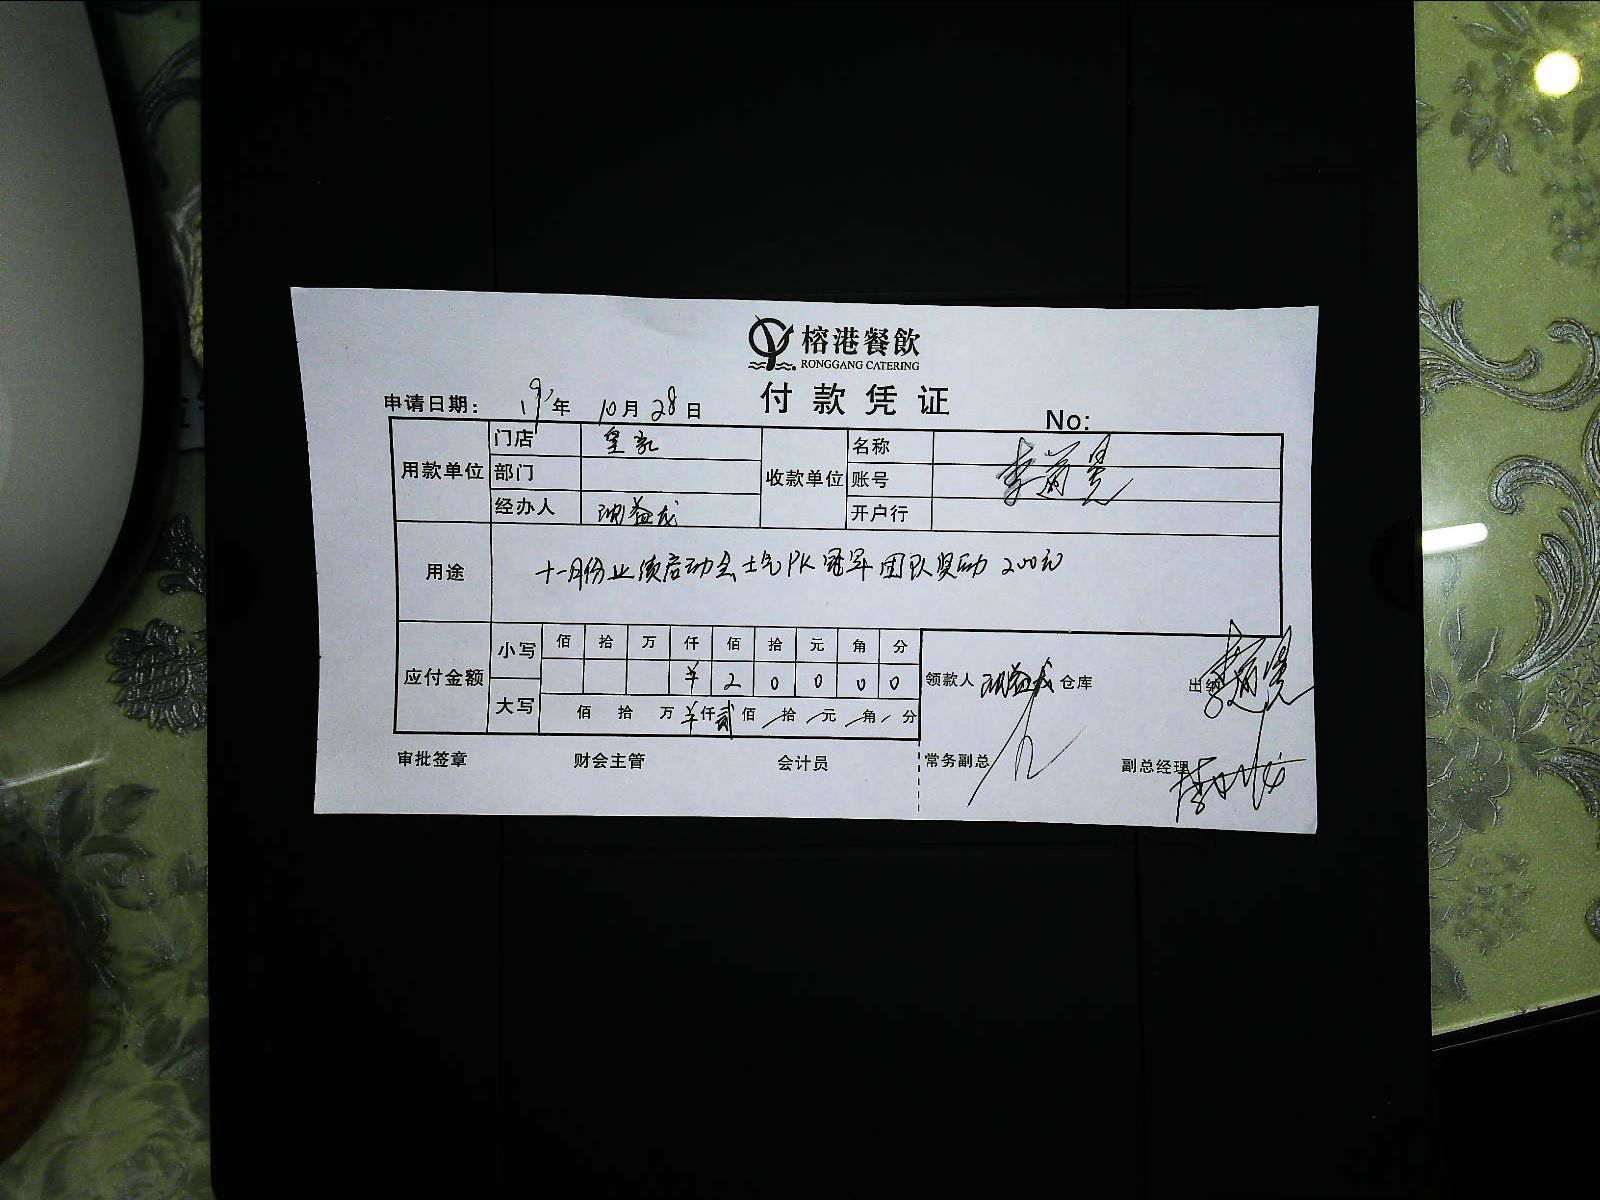 榕港餐飲
RONGGANG CATERING
付款凭证
申请日期： 19年 10月 28日
No:
用款单位 门店 皇家 收款单位 名称
部门 账号
经办人 开户行
用途 十一月份业绩启动会士气PK冠军团队奖励 200元
应付金额 小写 佰 拾 万 仟 佰 拾 元 角 分
¥ 2 0 0 0 0
大写 佰 拾 万 ¥ 仟 贰 佰 / 拾 / 元 / 角 / 分
领款人 仓库 出纳
审批签章 财会主管 会计员 常务副总 副总经理